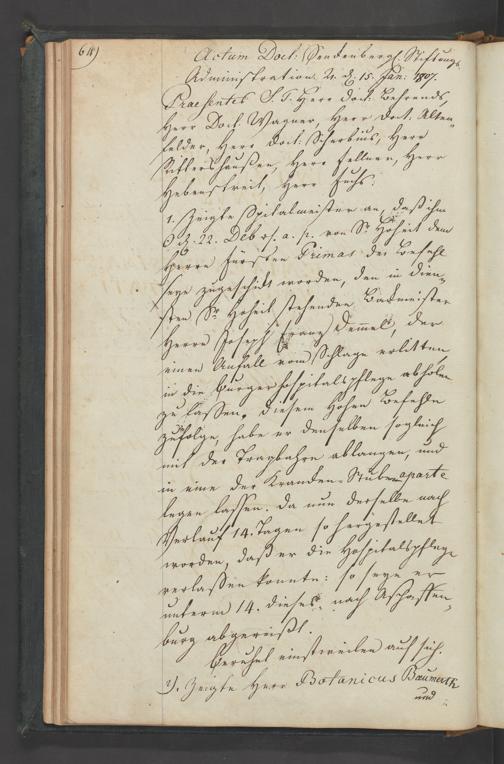 64)
Actum Doct. Senckenbergl. Stiftungs
Administration d. 15. Jan: 1807.
Praesentes S. T. Herr Doct. Behrends,
Herr Doct. Wagner, Herr Doct. Alten-
felder, Herr Doct. Scherbius, Herr
Rittershaußen, Herr Fellner, Herr
Hebenstreit, Herr Fuchs.
1. Zeigte Spitalmeister an, daß ihm
d. 22. Debr. a. p. von Sr Hoheit dem
Herrn Fürsten Primas der Befehl
seye zugeschickt worden, den in dien-
sten Sr Hoheit stehenden Baumeister
Herrn Joseph Franz, der
einen Anfall vom Schlage erlitten,
in die Bürgerhospitalspflege abholen
zu lassen. Diesem Hohen Befehle
zufolge, habe er denselben sogleich
mit der Tragbahre ablangen, und
in eine der Kranken Stuben aparte
legen lassen. Da nun derselbe nach
Verlauf 14. Tagen so hergestellet
worden, daß er die Hospitalspflege
verlaßen konnte: so seye er
unterm 14. dieses nach Aschaffen-
burg abgereißt.
Beruhet einstweilen auf sich.
2). Zeigte Herr Botanicus Baumerth
und